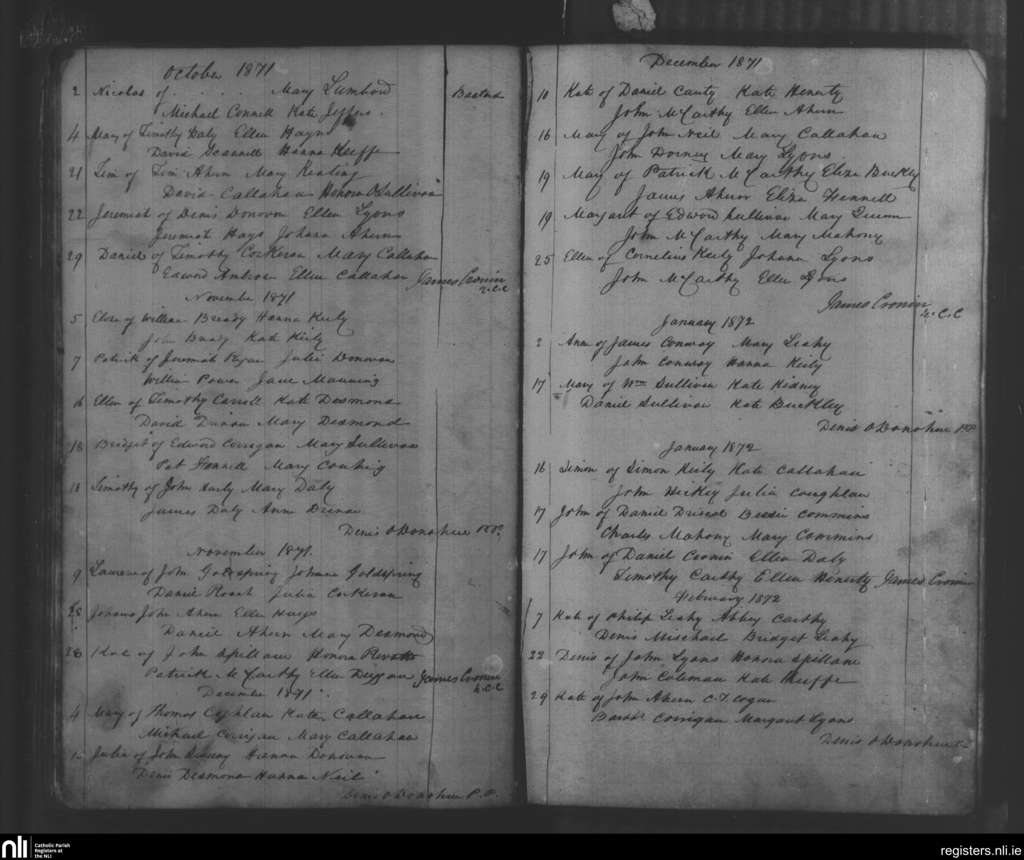 October 1871
2 Nicolas of . . . . Mary Lumbord Bastard
Michael Connell Kate Jeffers
4 Mary of Timothy Daly Ellen Hayes
David Scannell Hanna Keeffe
21 Tim of Tim Ahern Mary Keating
David Callahan Honora O Sullivan
22 Jeremiah of Denis Donovan Ellen Lyons
Jeremiah Hays Johana Ahern
29 Daniel of Timothy Corkeran Mary Callahan
Edword Ellen Callahan James Cronin
November 1871
5 of William Bready Hanna Kiely
John Bready Kate Kiely
7 Patrick of Jeremiah Ryan Julia Donovan
William Power Jane Manning
Ellen of Timothy Carroll Kate Desmond
David Mary Desmond
18 Bridget of Edword Corrigan Mary Sullivan
Pat Fennell Mary
18 Timothy of John Mary Daly
James Daly Anne
Denis O Donohue
November 1871
9 Laurence of John Goldspring Johana Goldspring
Daniel Roach Julia Corkeran
28 Johana John Ahern Ellen Hayes
Daniel Ahern Mary Desmond
28 Kate of John Spillane Honora
Patrick McCarthy Ellen James Cronin
C.C
December 1871
4 Mary of Thomas Kate Callahan
Michael Corrigan Mary Callahan
Julia of John Hanna Donovan
Denis Desmond Hanna Neil
Denis O Donohue P.P.
December 1871
10 Kate of Daniel Canty Kate Henerty
John McCarthy Ellen Ahern
16 Mary of John Neil Mary Callahan
John Dorney Mary Lyons
19 Mary of Patrick McCarthy Eliza Buckley
James Ahern Eliza Fennell
19 Margaret of Edword Sullivan Mary
John McCarthy Mary Mahony
25 Ellen of Cornelius Kiely Johana Lyons
John McCarthy Ellen Lyons
James Cronin
C.C
January 1872
2 Ann of James Conway Mary Leahy
John Conway Hanna Kiely
17 Mary of Wm Sullivan Kate Kidney
Daniel Sullivan Kate Buckley
Denis O Donohue PP
January 1872
16 Simon of Simon Kiely Kate Callahan
John Hickey Julia Coughlan
17 John of Daniel Driscol Bessie Commins
Charles Mahony Mary Commins
17 John of Daniel Cronin Ellen Daly
Timothy Carthy Ellen Henerty James Cronin
February 1872
7 Kate of Philip Leahy Abbey Carthy
Denis Mischael Bridget Leahy
22 Denis of John Lyons Honora Spillane
John Coleman Kate Keeffe
29 Kate of John Ahern
Corrigan Margaret Lyons
Denis O Donohue
nli Catholic Parish
Registers at
the NLI
registers.nli.ie